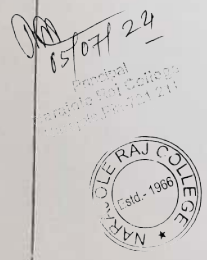 05/07/22
Principal
Narajole Raj College
NARAJOLE RAJ COLLEGE
Estd.-1966